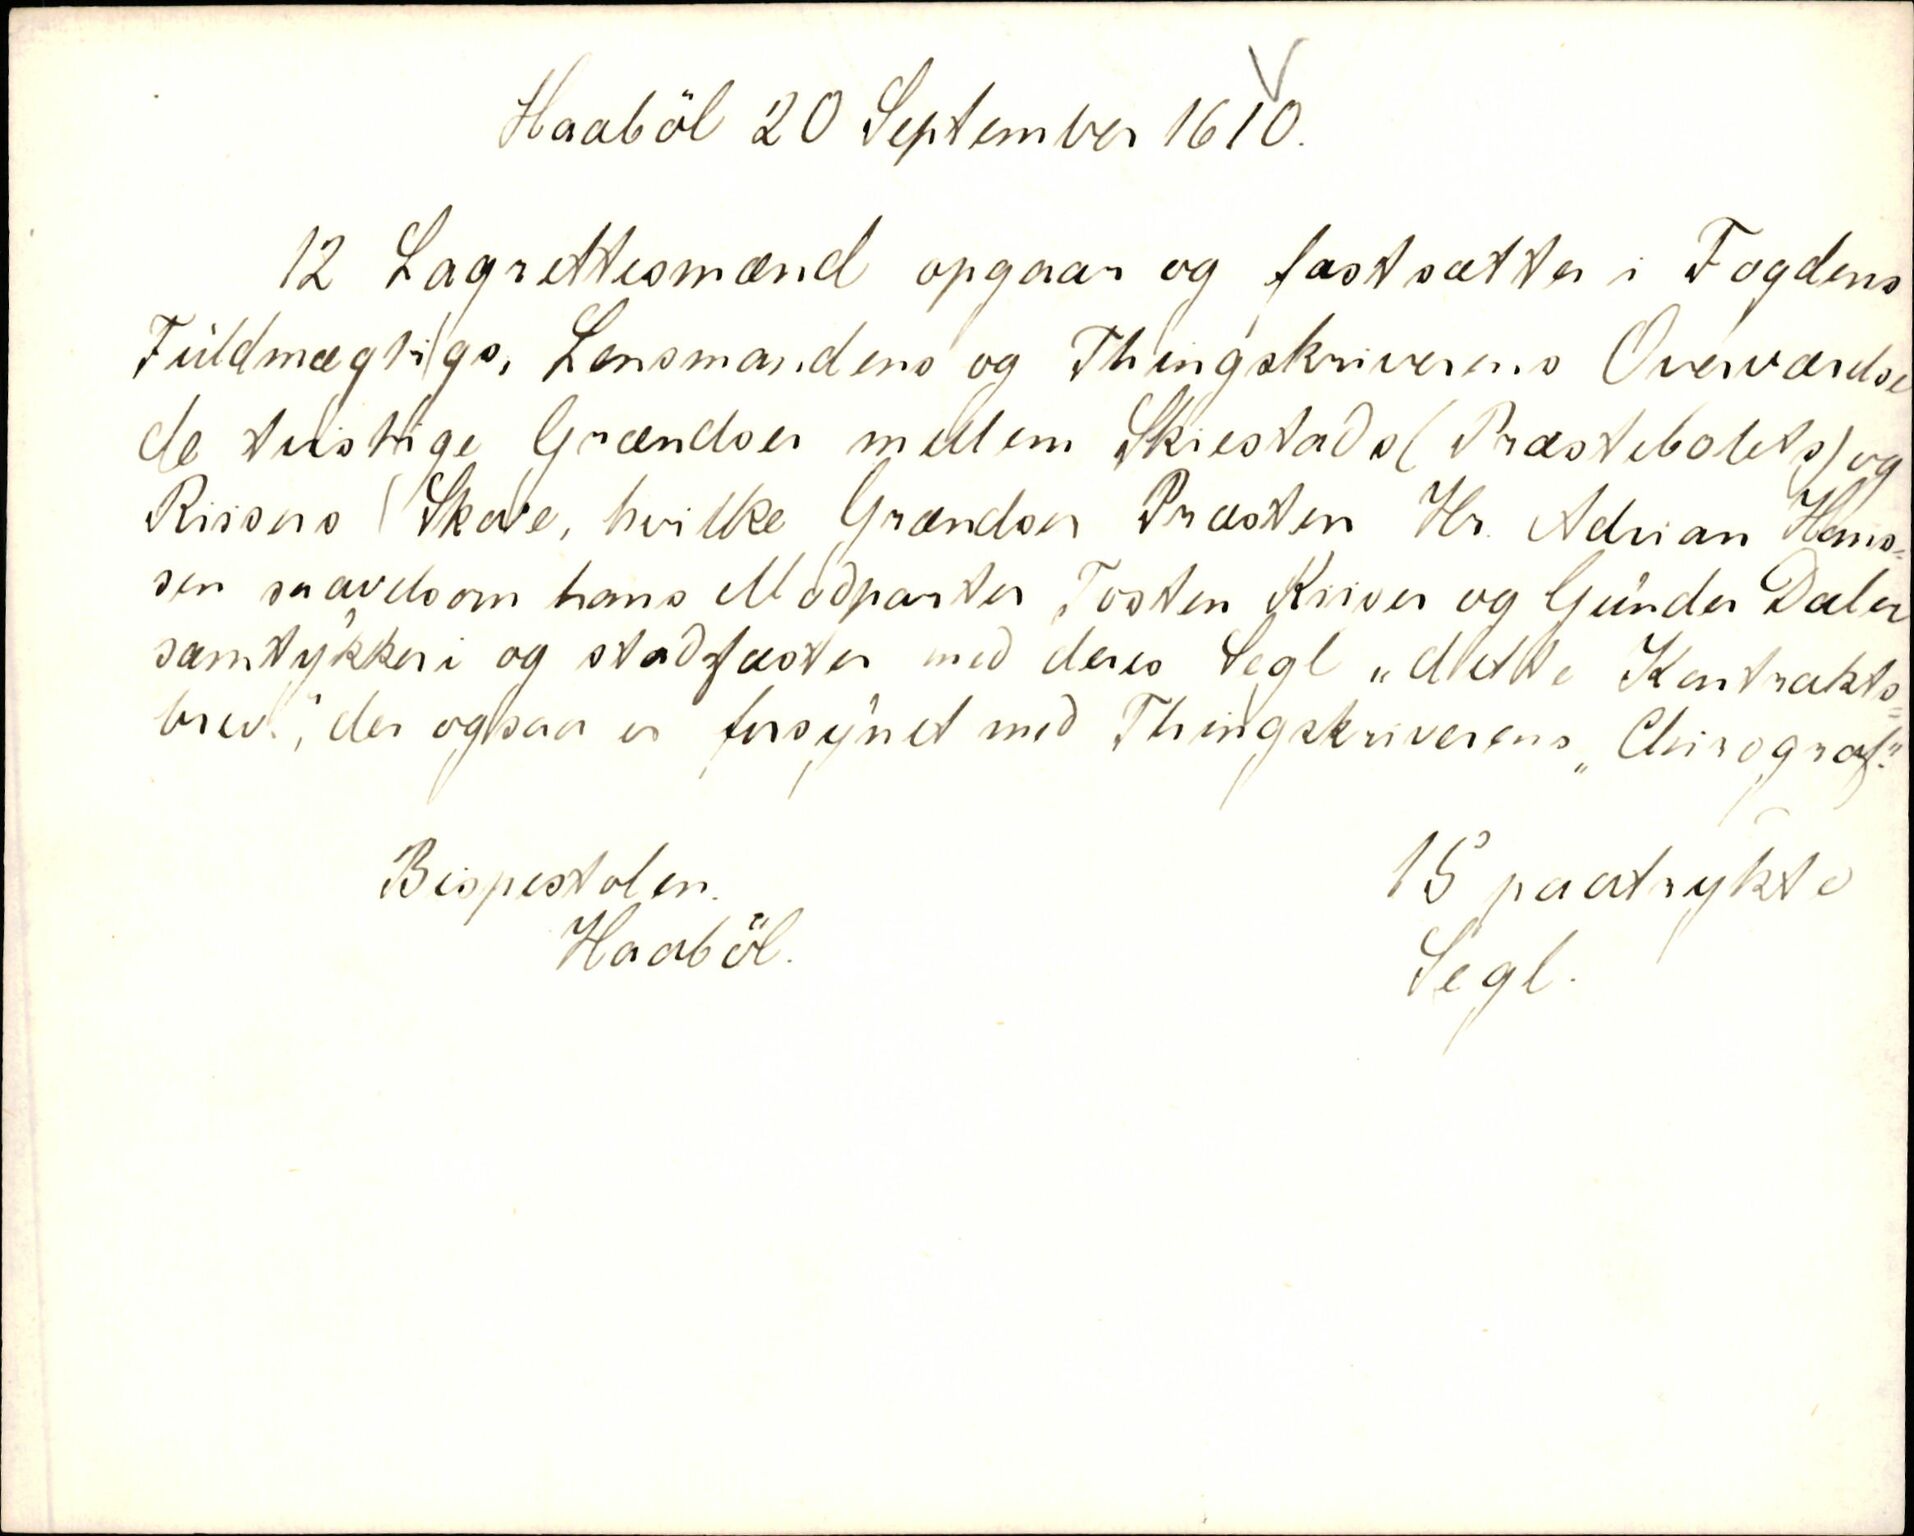 Haaböl 20 September 1610.
12 Lagrettesmænd opgaar og fastsætter i Fogdens
Fuldmægtigs, Lensmandens og Thingskriverens Overværelse
de tvistige Grændser mellem Skiestads (Præstebolets) og
Riisers Skove, hvilke Grændser Præsten Hr. Adrian Hans=
sen saavelsom hans Modparter Tosten Riiser og Gunder Daler
samtykker i og stadfæster med deres Segl „dette Kontrakts=
brev.", der ogsaa er forsynet med Thingskriverens „Chirograf."
Bispestolen.
Haaböl.
15 paatrykte
Segl.